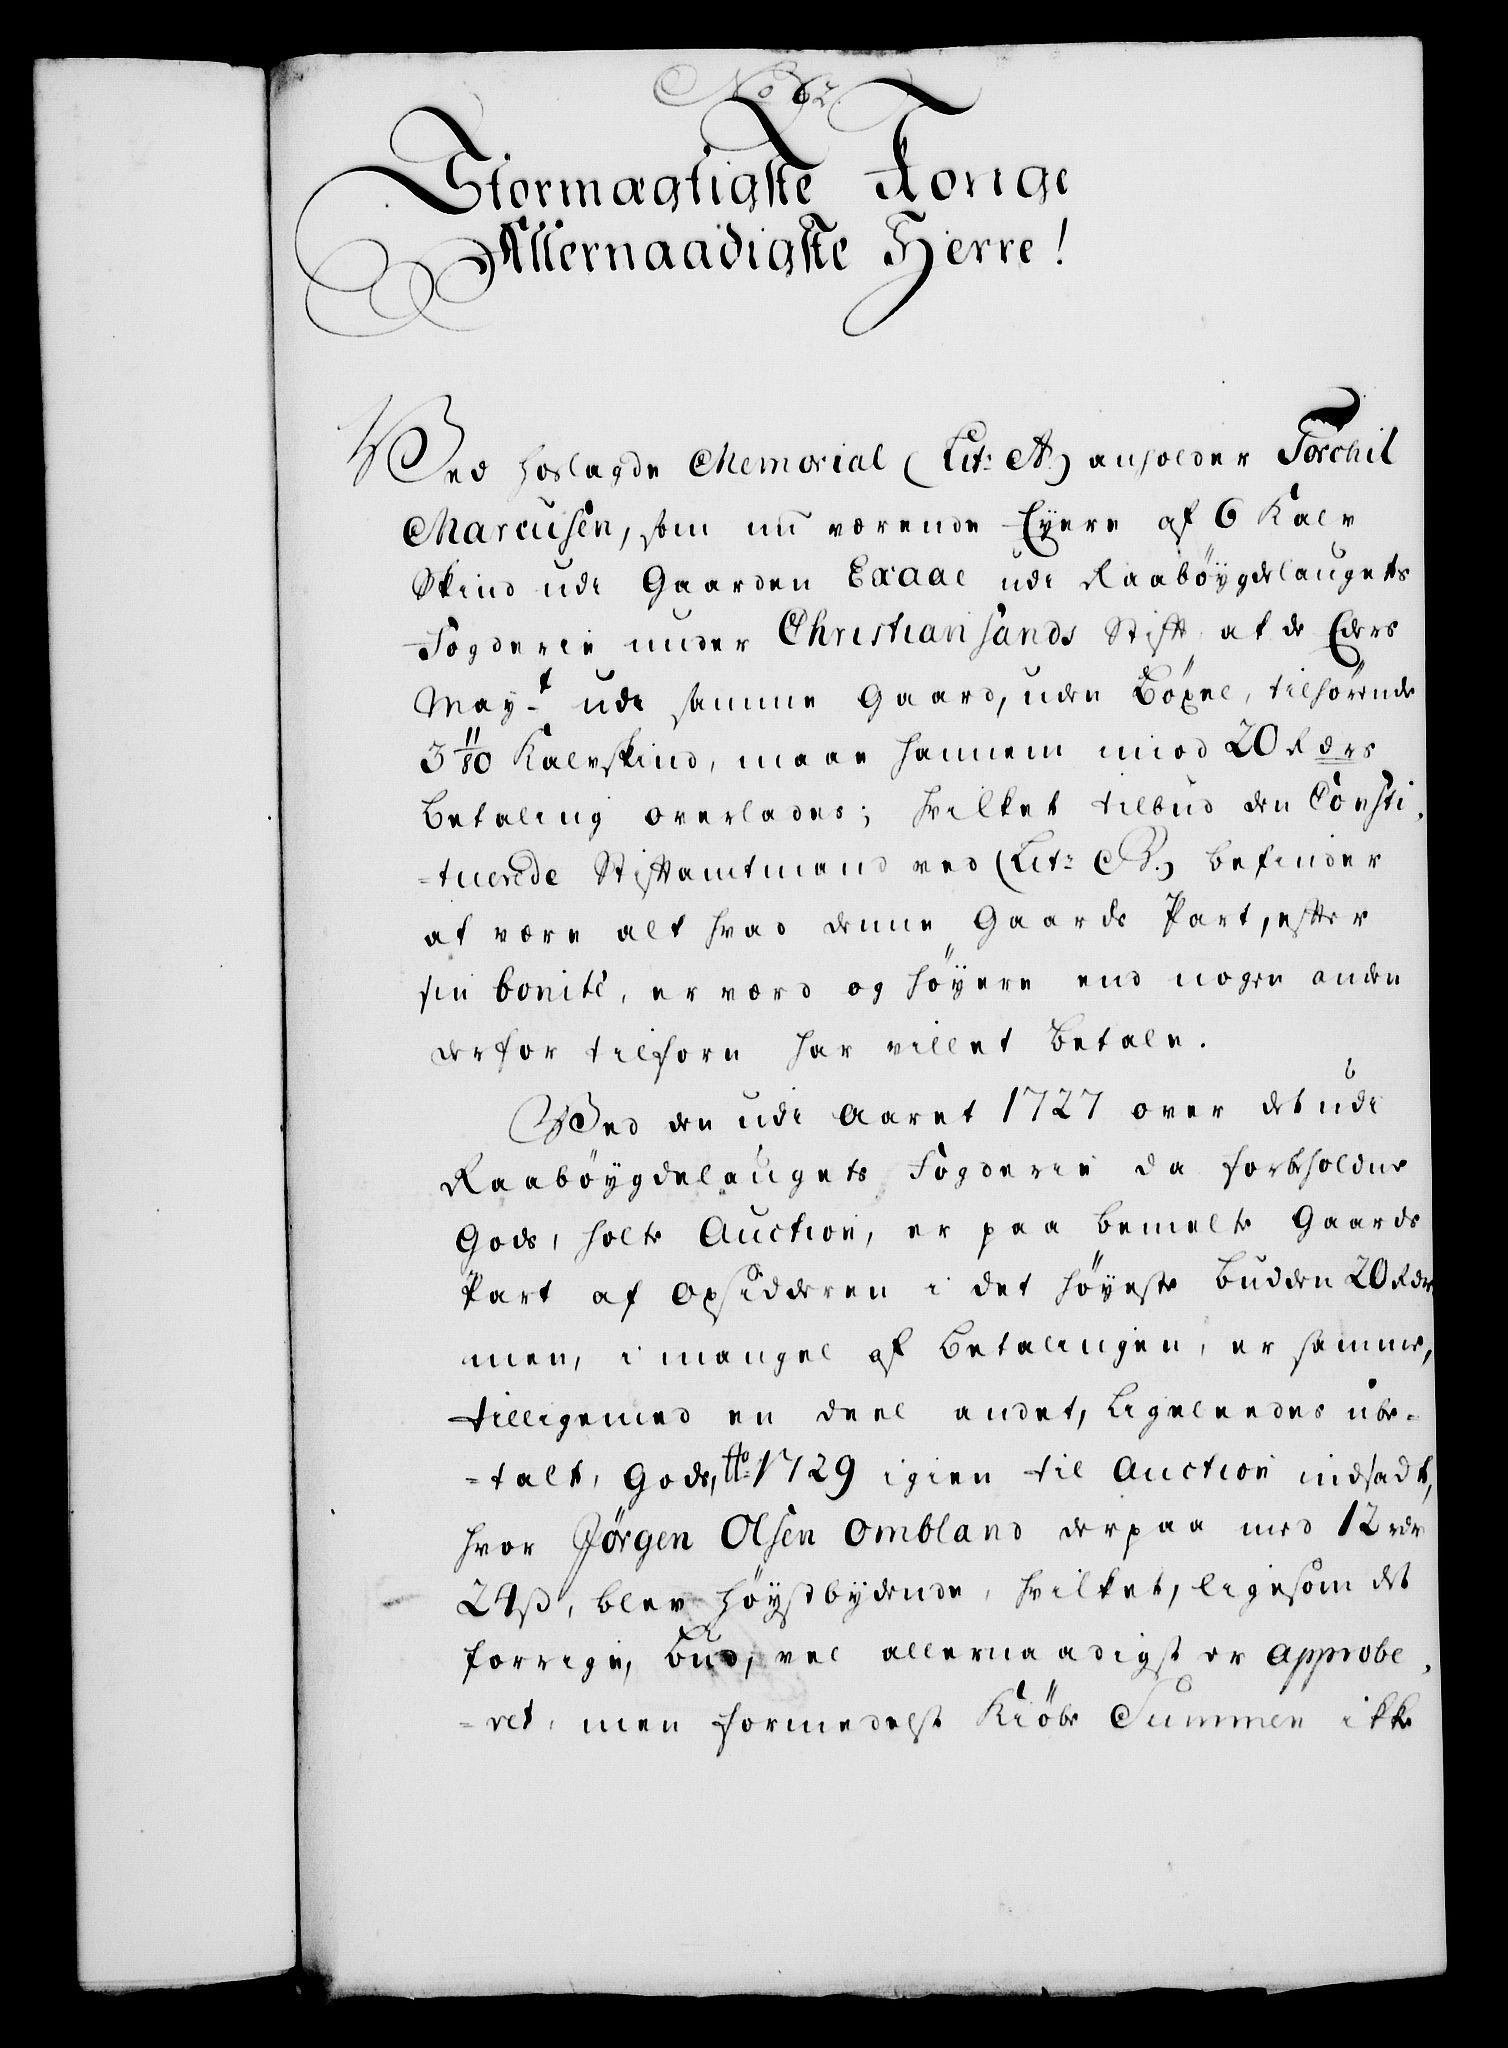 No 62
Stormægtigste Konge
Allernaadigste Herre!
Ved hoslagde Memorial (Lit: A) anholder Torchil
Marcusen, som nu værende Eyere af 6 Kalv
Skind udi Gaarden Exaae udi Raabøygdelaugets
Fogderie under Christiansands Stift, at de Eders
May-t udi samme Gaard, uden Böxel, tilhörende
3 11/80 Kalvskind, maae hannem imod 20 Rdrs
Betaling overlades; hvilket tilbud den Consti,
-tuerede Stiftamtmand ved (Lit: B.) befinder
at være alt hvad denne Gaarde Part, efter
sin bonité, er værd og höyere end nogen anden
derfor tilforn har villet betale.
Ved den udi Aaret 1727 over det udi
Raabøygdelaugets Fogderie da forbeholdne
Gods, holte Auction, er paa bemelte Gaarde
Part af Opsidderen i det höyeste budden 20 Rdr
men, i mangel af Betalingen, er samme,
tilligemed en deel andet, ligeleedes ube-
-talt, Gods, Ao 1729 igien til Auction indsadt,
hvor Jörgen Olsen Ombland derpaa med 12 rdr
24 ß, blev höystbydende, hvilket, ligesom det
forrige, bud, vel allernaadigst er approbe,
-ret, men formedelst Kiöbe Summen ikke